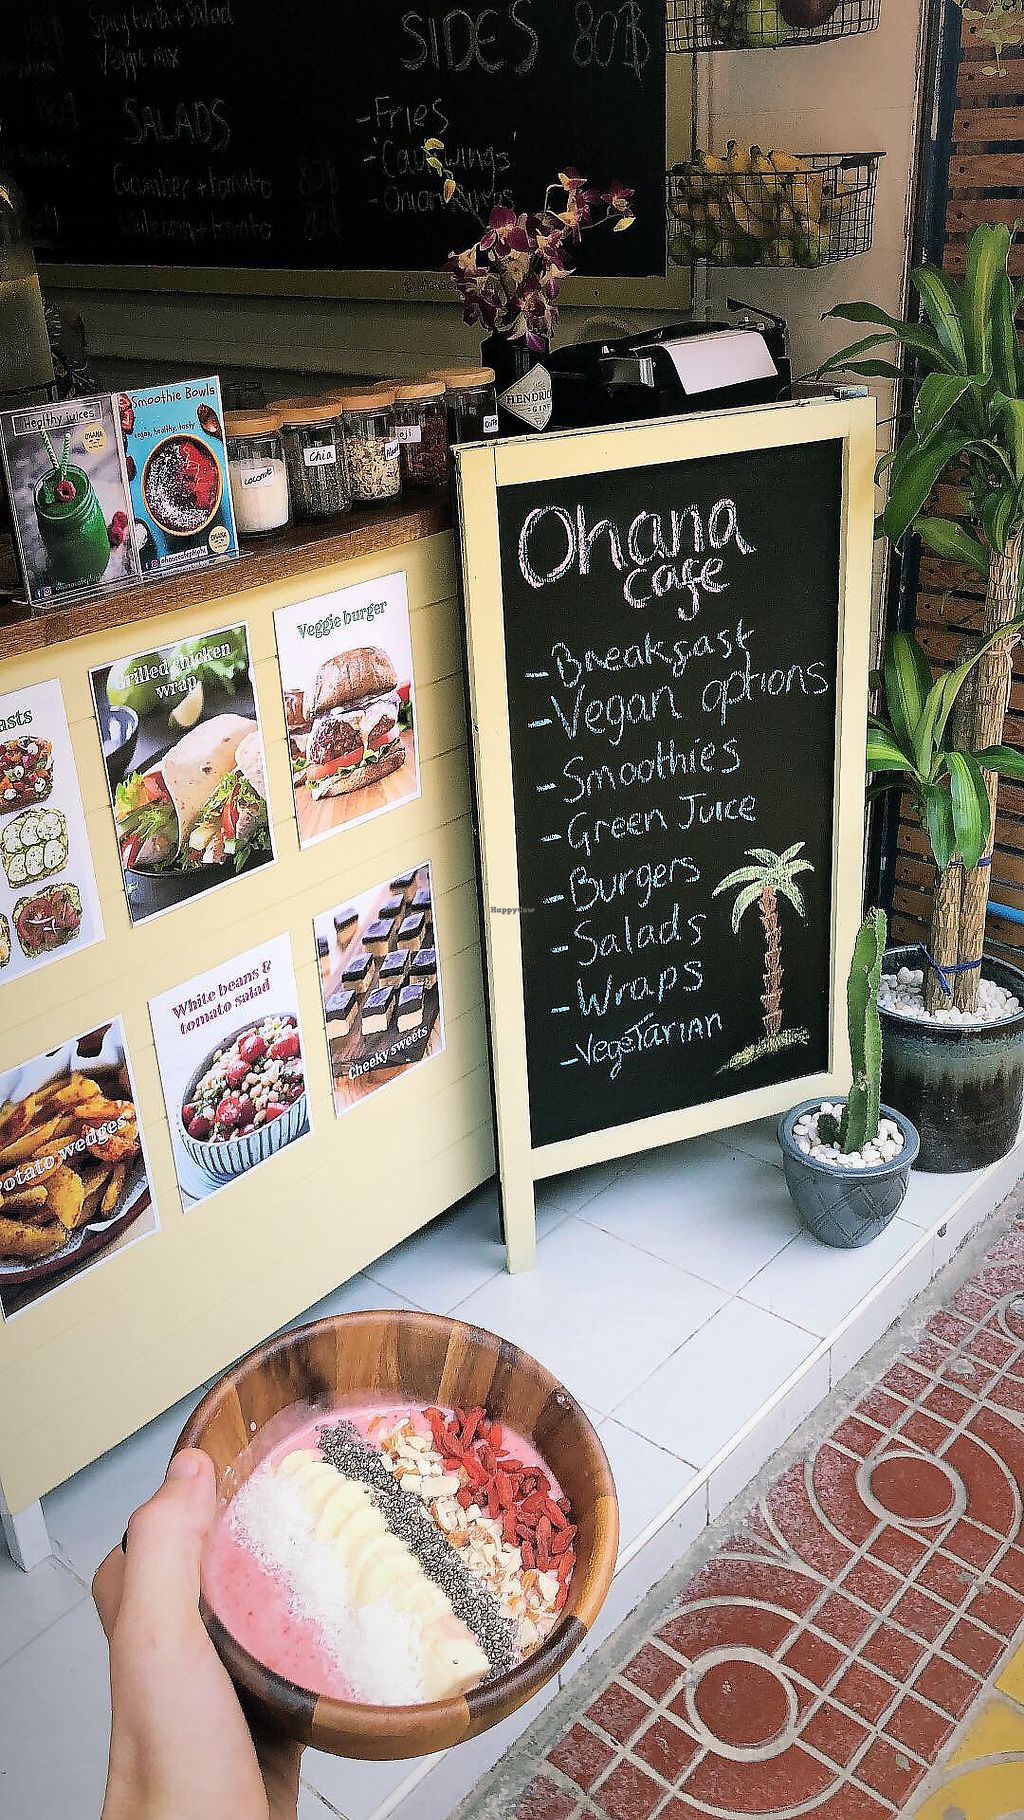 Spicy tuna + Salad
Veggie mix
SALADS
Cucumber + tomato 80฿
White bean + tomato 80฿
SIDES 80฿
- Fries
- 'Cauli wings'
- Onion Rings
Healthy juices
OHANA
Smoothie Bowls
vegan, healthy, tasty
OHANA
coconut
Chia
goji
HENDRICK'S
GIN
Ohana
cafe
- Breakfast
- Vegan options
- Smoothies
- Green Juice
- Burgers
- Salads
- Wraps
- VegeTarian
asts
Grilled chicken
wrap
Veggie burger
Potato wedges
White beans &
tomato salad
Cheeky sweets
HappyCow